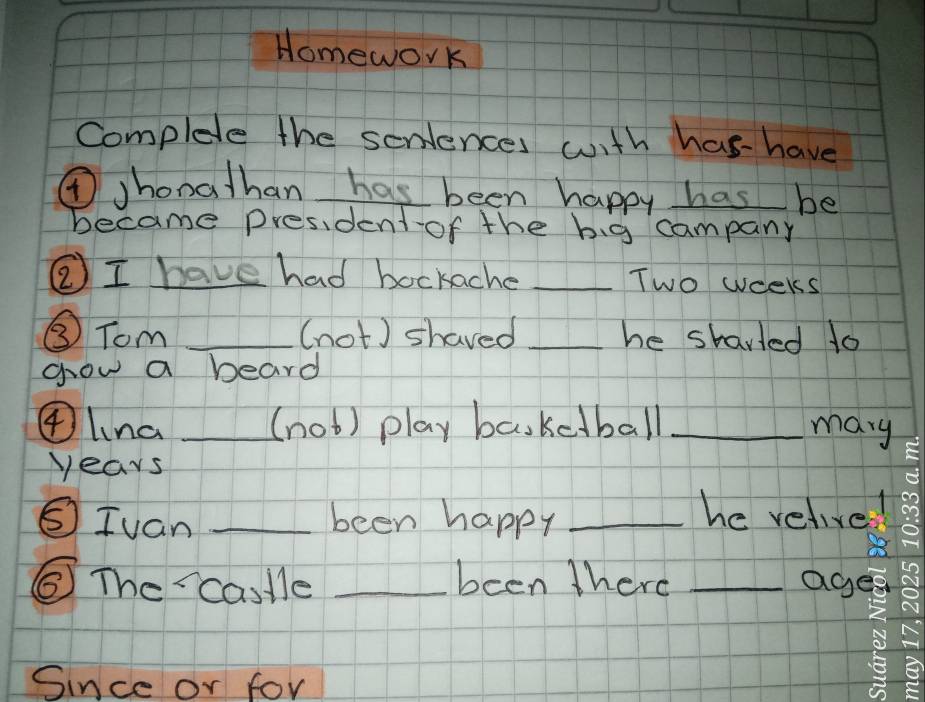 Homework
Complete the sentences with has-have
① Jhonathan has been happy has be
became president of the big company
② I have had backache ____ Two weeks
③ Tom ____ (not) shaved ____ he started to
grow a beard
④ lina ____ (not) play basketball ____ many
years
⑤ Ivan ____ been happy ____ he retired
⑥ The castle ____ been there ____ ages
Since or for
Suárez Nicol 🦋🌸
may 17, 2025 10:33 a. m.